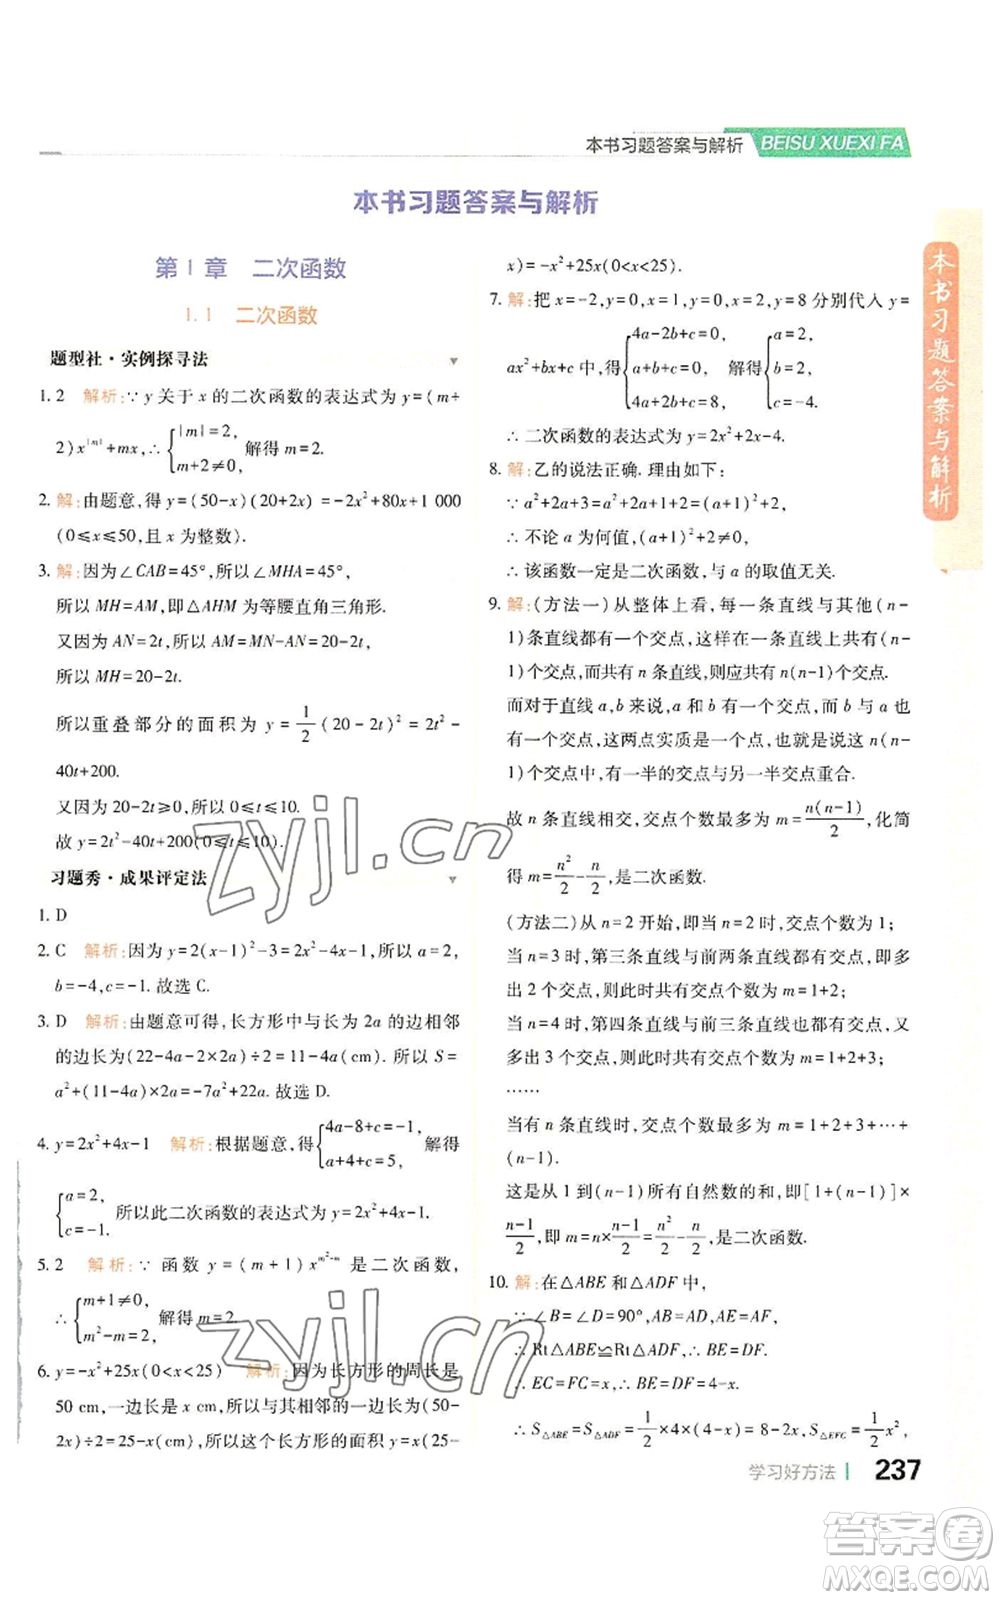 本书习题答案与解析 BEISU XUEXI FA
本书习题答案与解析
第1章 二次函数
1.1 二次函数
题型社·实例探寻法
1. 2 解析:∵y关于x的二次函数的表达式为y=(m+
2)x^|m|+mx,∴{|m|=2, m+2≠0, 解得m=2.
2. 解:由题意,得y=(50-x)(20+2x)=-2x²+80x+1 000
(0≤x≤50,且x为整数).
3. 解:因为∠CAB=45°,所以∠MHA=45°,
所以MH=AM,即△AHM为等腰直角三角形.
又因为AN=2t,所以AM=MN-AN=20-2t,
所以MH=20-2t.
所以重叠部分的面积为y=1/2(20-2t)²=2t²-
40t+200.
又因为20-2t≥0,所以0≤t≤10.
故y=2t²-40t+200(0≤t≤10).
习题秀·成果评定法
1. D
2. C 解析:因为y=2(x-1)²-3=2x²-4x-1,所以a=2,
b=-4,c=-1.故选C.
3. D 解析:由题意可得,长方形中与长为2a的边相邻
的边长为(22-4a-2×2a)÷2=11-4a. 所以S=
a²+(11-4a)×2a=-7a²+22a.故选D.
4. y=2x²+4x-1 解析:根据题意,得{4a-8+c=-1, a+4+c=5,
{a=2, c=-1. 所以此二次函数的表达式为y=2x²+4x-1.
5. 2 解析:∵函数y=(m+1)x^(m²-m)是二次函数,
∴{m+1≠0, m²-m=2, 解得m=2.
6. y=-x²+25x(0<x<25) 解析:因为长方形的周长是
50 cm,一边长为x cm,所以另一边长为(50-
2x)÷2=25-x(cm),所以这个长方形的面积y=x(25-
x)=-x²+25x(0<x<25).
7. 解:把x=-2,y=0;x=1,y=0;x=2,y=8分别代入y=
ax²+bx+c中,得{4a-2b+c=0, a+b+c=0, 4a+2b+c=8, 解得{a=2, b=2, c=-4.
∴二次函数的表达式为y=2x²+2x-4.
8. 解:乙的说法正确. 理由如下:
∵a²+2a+3=a²+2a+1+2=(a+1)²+2,
∴不论a为何值,(a+1)²+2≠0,
∴该函数一定是二次函数,与a的取值无关.
9. 解:(方法一)从整体上看,每一条直线与其他(n-
1)条直线都有一个交点,这样在n条直线上共有(n-
1)个交点,而共有n条直线,则应共有n(n-1)个交点.
而对于直线a,b来说,a和b有一个交点,b和a也
有一个交点,这两点实质是一个点,也就是说,这n(n-
1)个交点中,有一半的交点与另一半交点重合.
故n条直线相交,交点个数最多为m=n(n-1)/2,化简
得m=n²/2-n/2,是二次函数.
(方法二)从n=2开始,即当n=2时,交点个数为1;
当n=3时,第三条直线与前两条直线都有交点,即多
出2个交点,则此时共有交点个数为m=1+2;
当n=4时,第四条直线与前三条直线也都有交点,多
出3个交点,则此时共有交点个数为m=1+2+3;
……
当有n条直线时,交点个数最多为m=1+2+3+…+
(n-1).
这是从1到(n-1)所有自然数的和,即[1+(n-1)]×
n-1/2,即m=n×n-1/2=n²/2-n/2,是二次函数.
10. 解:在△ABE和△ADF中,
∵∠B=∠D=90°,AB=AD,AE=AF,
∴Rt△ABE≌Rt△ADF,∴BE=DF,
∴EC=FC=x,∴BE=DF=4-x,
∴S△ABE=S△ADF=1/2×4×(4-x)=8-2x,S△EFC=1/2x²,
本书习题答案与解析
学习好方法 237
zyjl.cn
zyjl.cn
答案卷
MXQE.COM